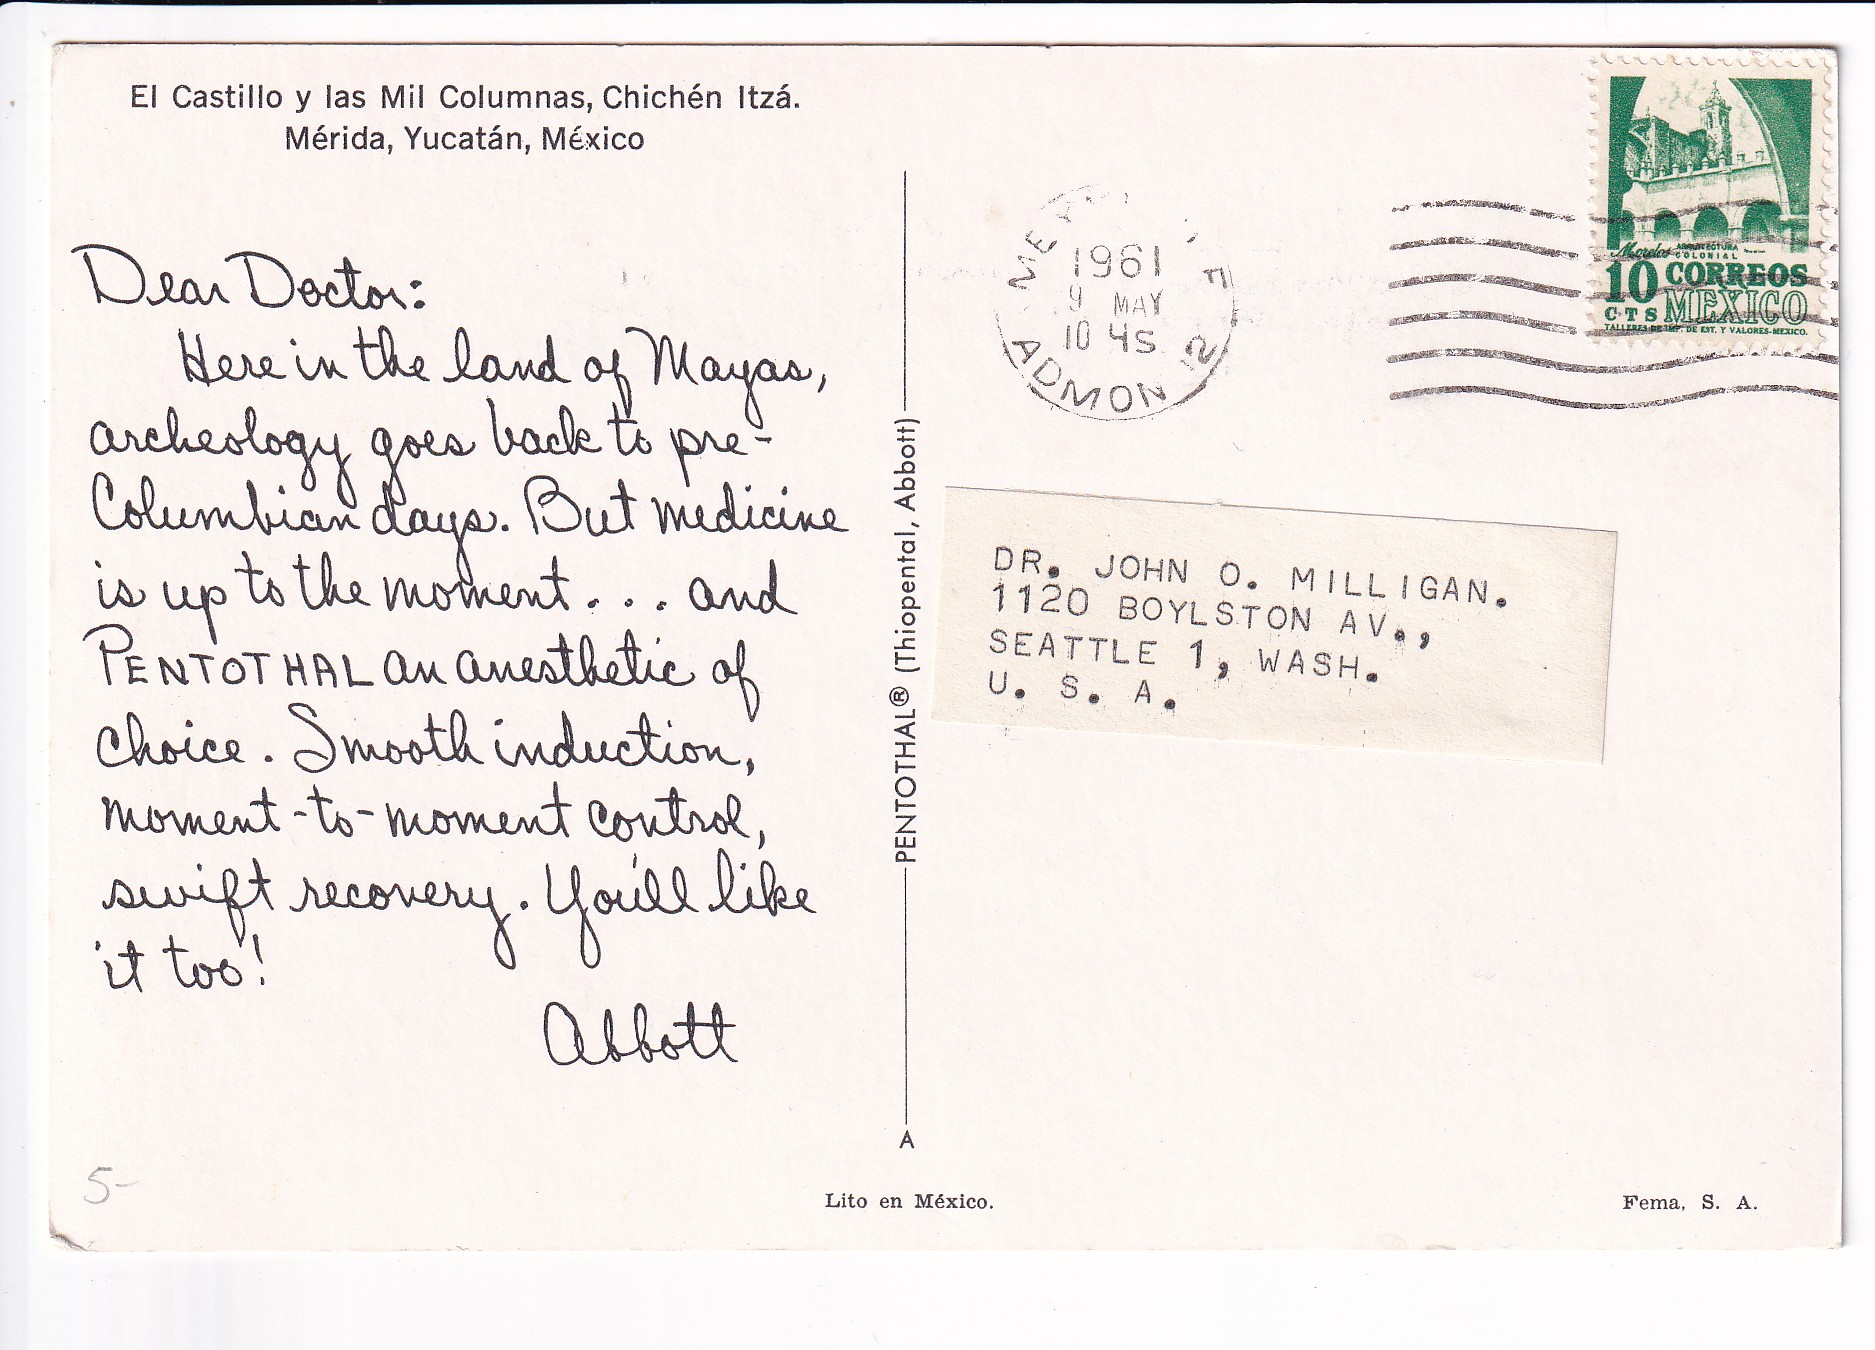 El Castillo y las Mil Columnas, Chichén Itzá.
Mérida, Yucatán, México
Dear Doctor:
Here in the land of Mayas,
archeology goes back to pre-
Columbian days. But medicine
is up to the moment . . . and
PENTOTHAL an anesthetic of
choice. Smooth induction,
moment-to-moment control,
swift recovery. You'll like
it too!
Abbott
5-
PENTOTHAL® (Thiopental, Abbott)
A
Lito en México.
1961
9 MAY
10 45
ADMON 12
Morelos ARQUITECTURA
COLONIAL
10 CORREOS
CTS MEXICO
TALLERES DE IMP. DE EST. Y VALORES-MEXICO.
DR. JOHN O. MILLIGAN.
1120 BOYLSTON AV.,
SEATTLE 1, WASH.
U. S. A.
Fema, S. A.